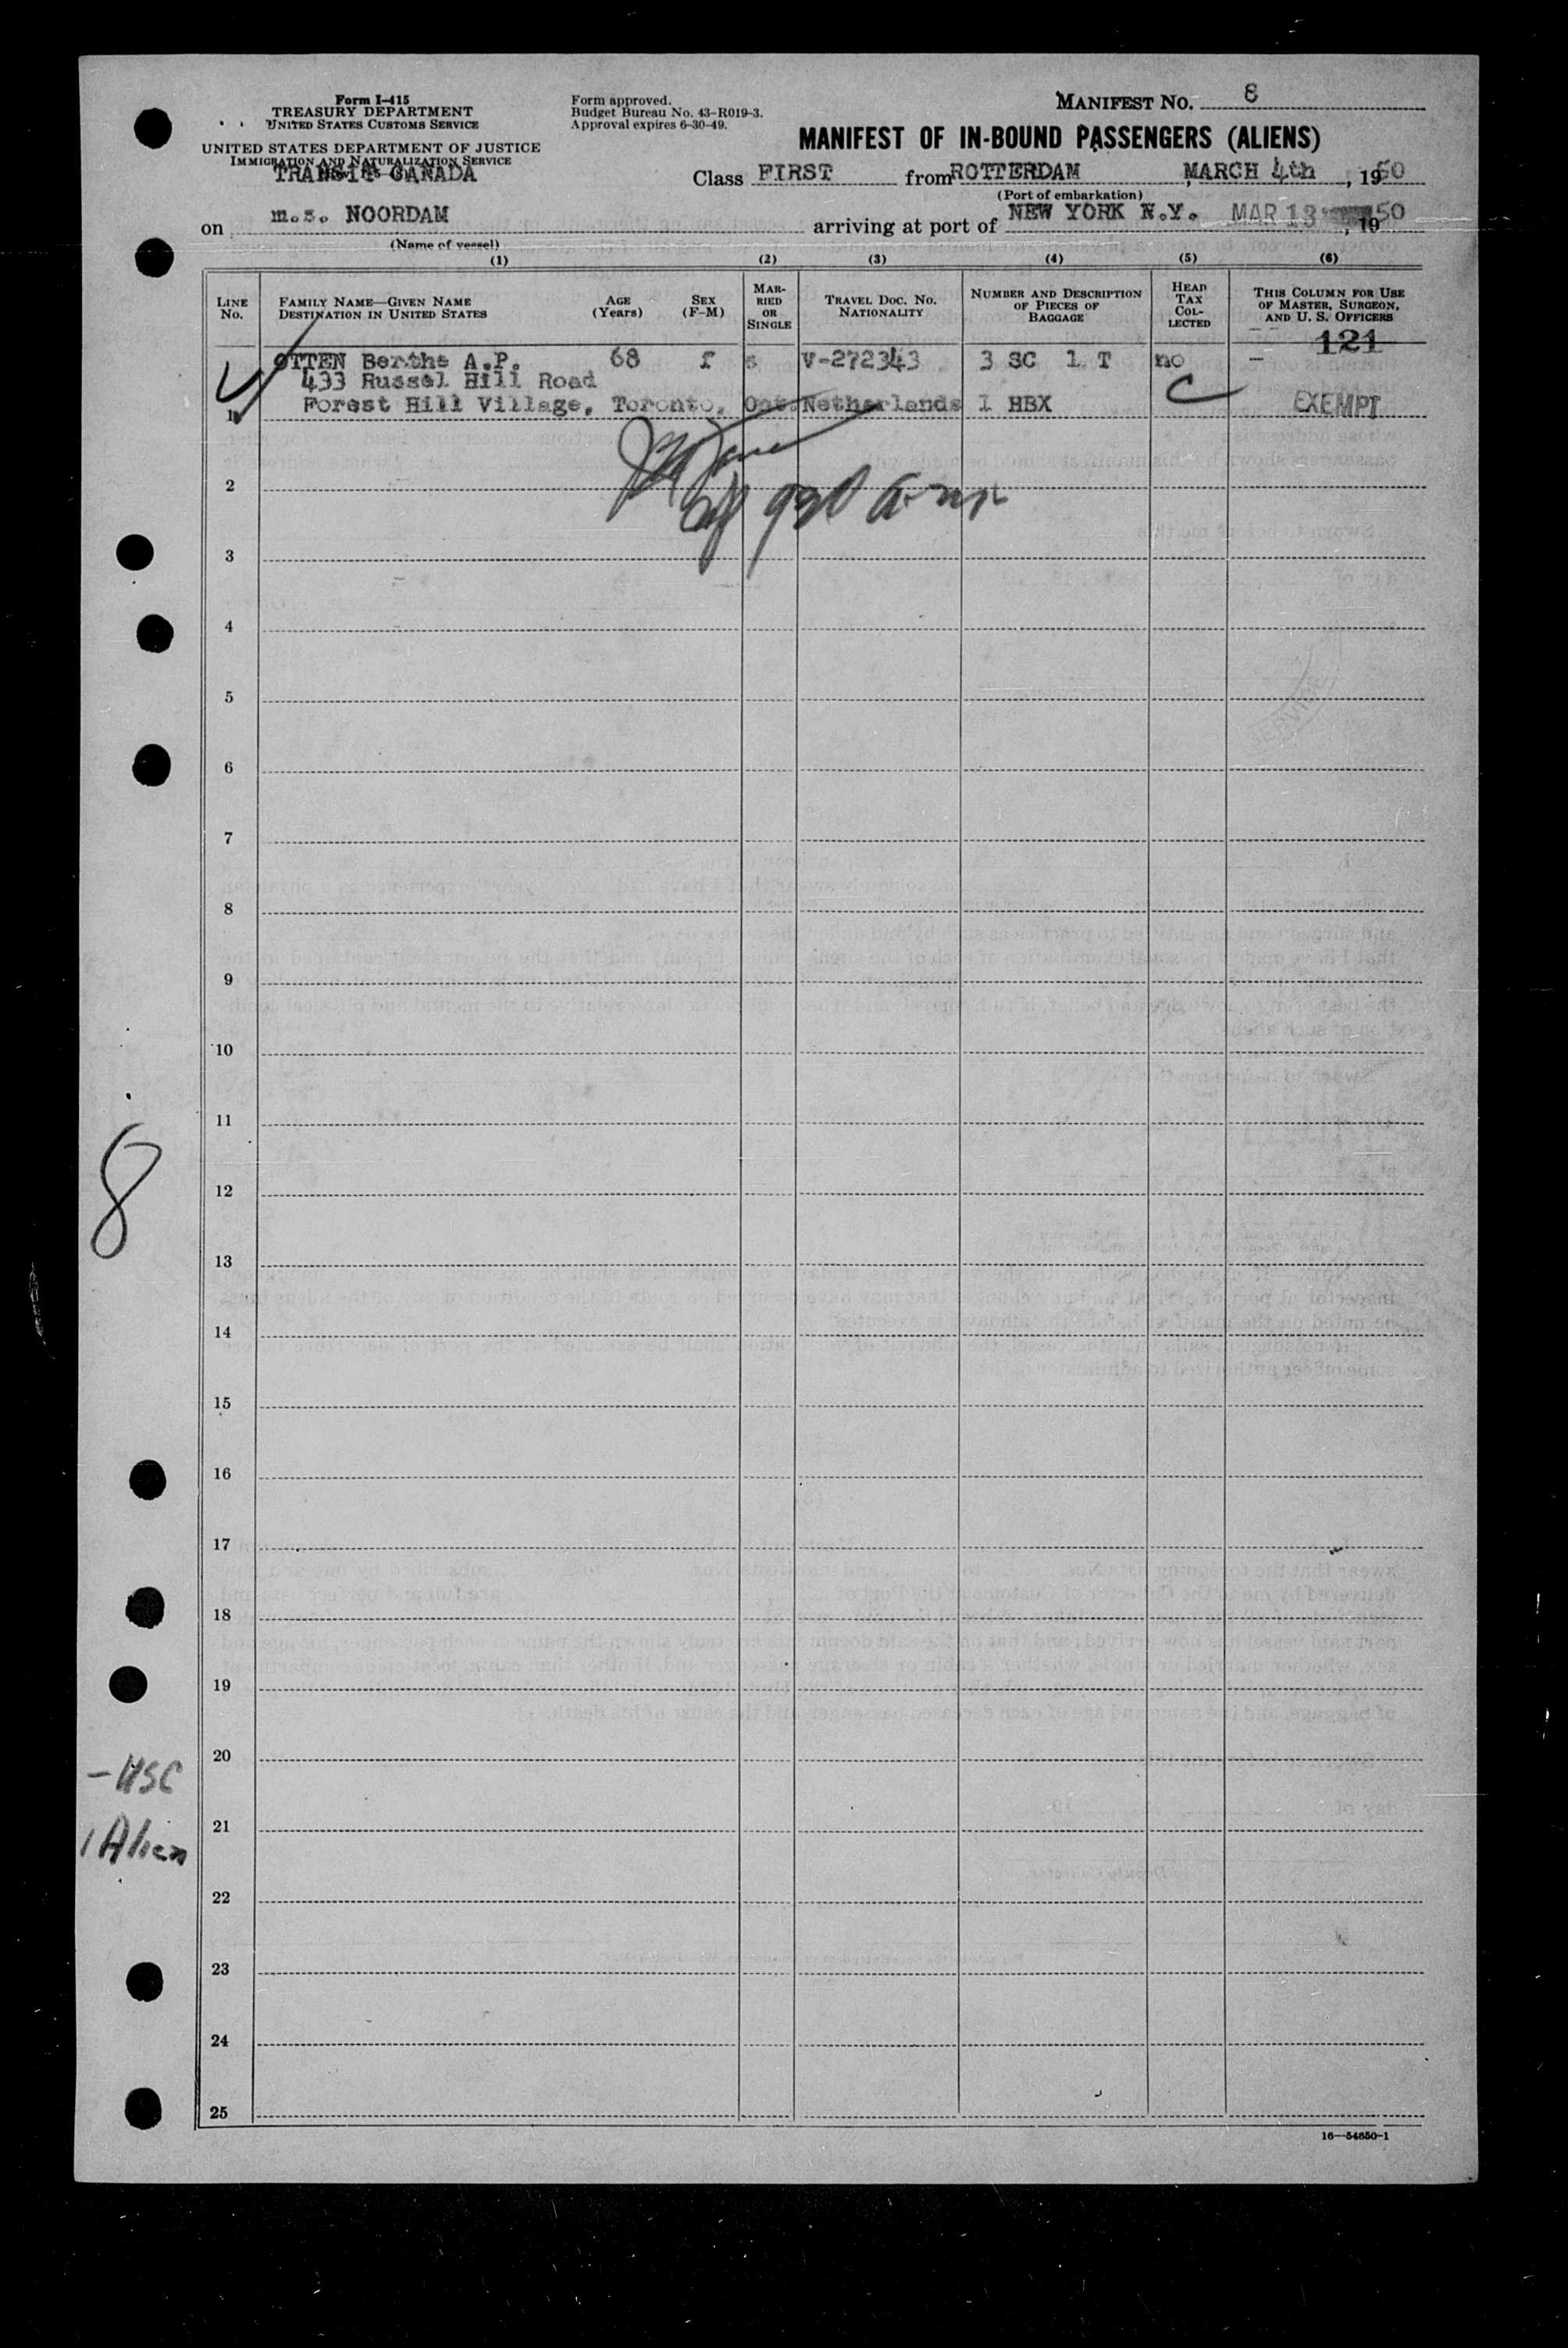 Form I-415
TREASURY DEPARTMENT
UNITED STATES CUSTOMS SERVICE
UNITED STATES DEPARTMENT OF JUSTICE
IMMIGRATION AND NATURALIZATION SERVICE
TRANSIT CANADA
Form approved.
Budget Bureau No. 43-R019-3.
Approval expires 6-30-49.
MANIFEST NO. 8
MANIFEST OF IN-BOUND PASSENGERS (ALIENS)
Class FIRST from ROTTERDAM, MARCH 4th, 1950
(Port of embarkation)
on m.s. NOORDAM arriving at port of NEW YORK N.Y. MAR 13 1950
(Name of vessel)
(1) (2) (3) (4) (5) (6)
LINE No. FAMILY NAME—GIVEN NAME DESTINATION IN UNITED STATES AGE (Years) SEX (F-M) MARRIED OR SINGLE TRAVEL DOC. NO. NATIONALITY NUMBER AND DESCRIPTION OF PIECES OF BAGGAGE HEAD TAX COLLECTED THIS COLUMN FOR USE OF MASTER, SURGEON, AND U. S. OFFICERS
121
OTTEN Bertha A.P. 68 f s V-272343 3 SC 1 T no –
433 Russel Hill Road
1 Forest Hill Village, Toronto, Ont. Netherlands 1 HBX C EXEMPT
2
3
4
5
6
7
8
9
10
11
12
8
13
14
15
16
17
18
19
20
– USC
21
1 Alien
22
23
24
25
16—54650-1